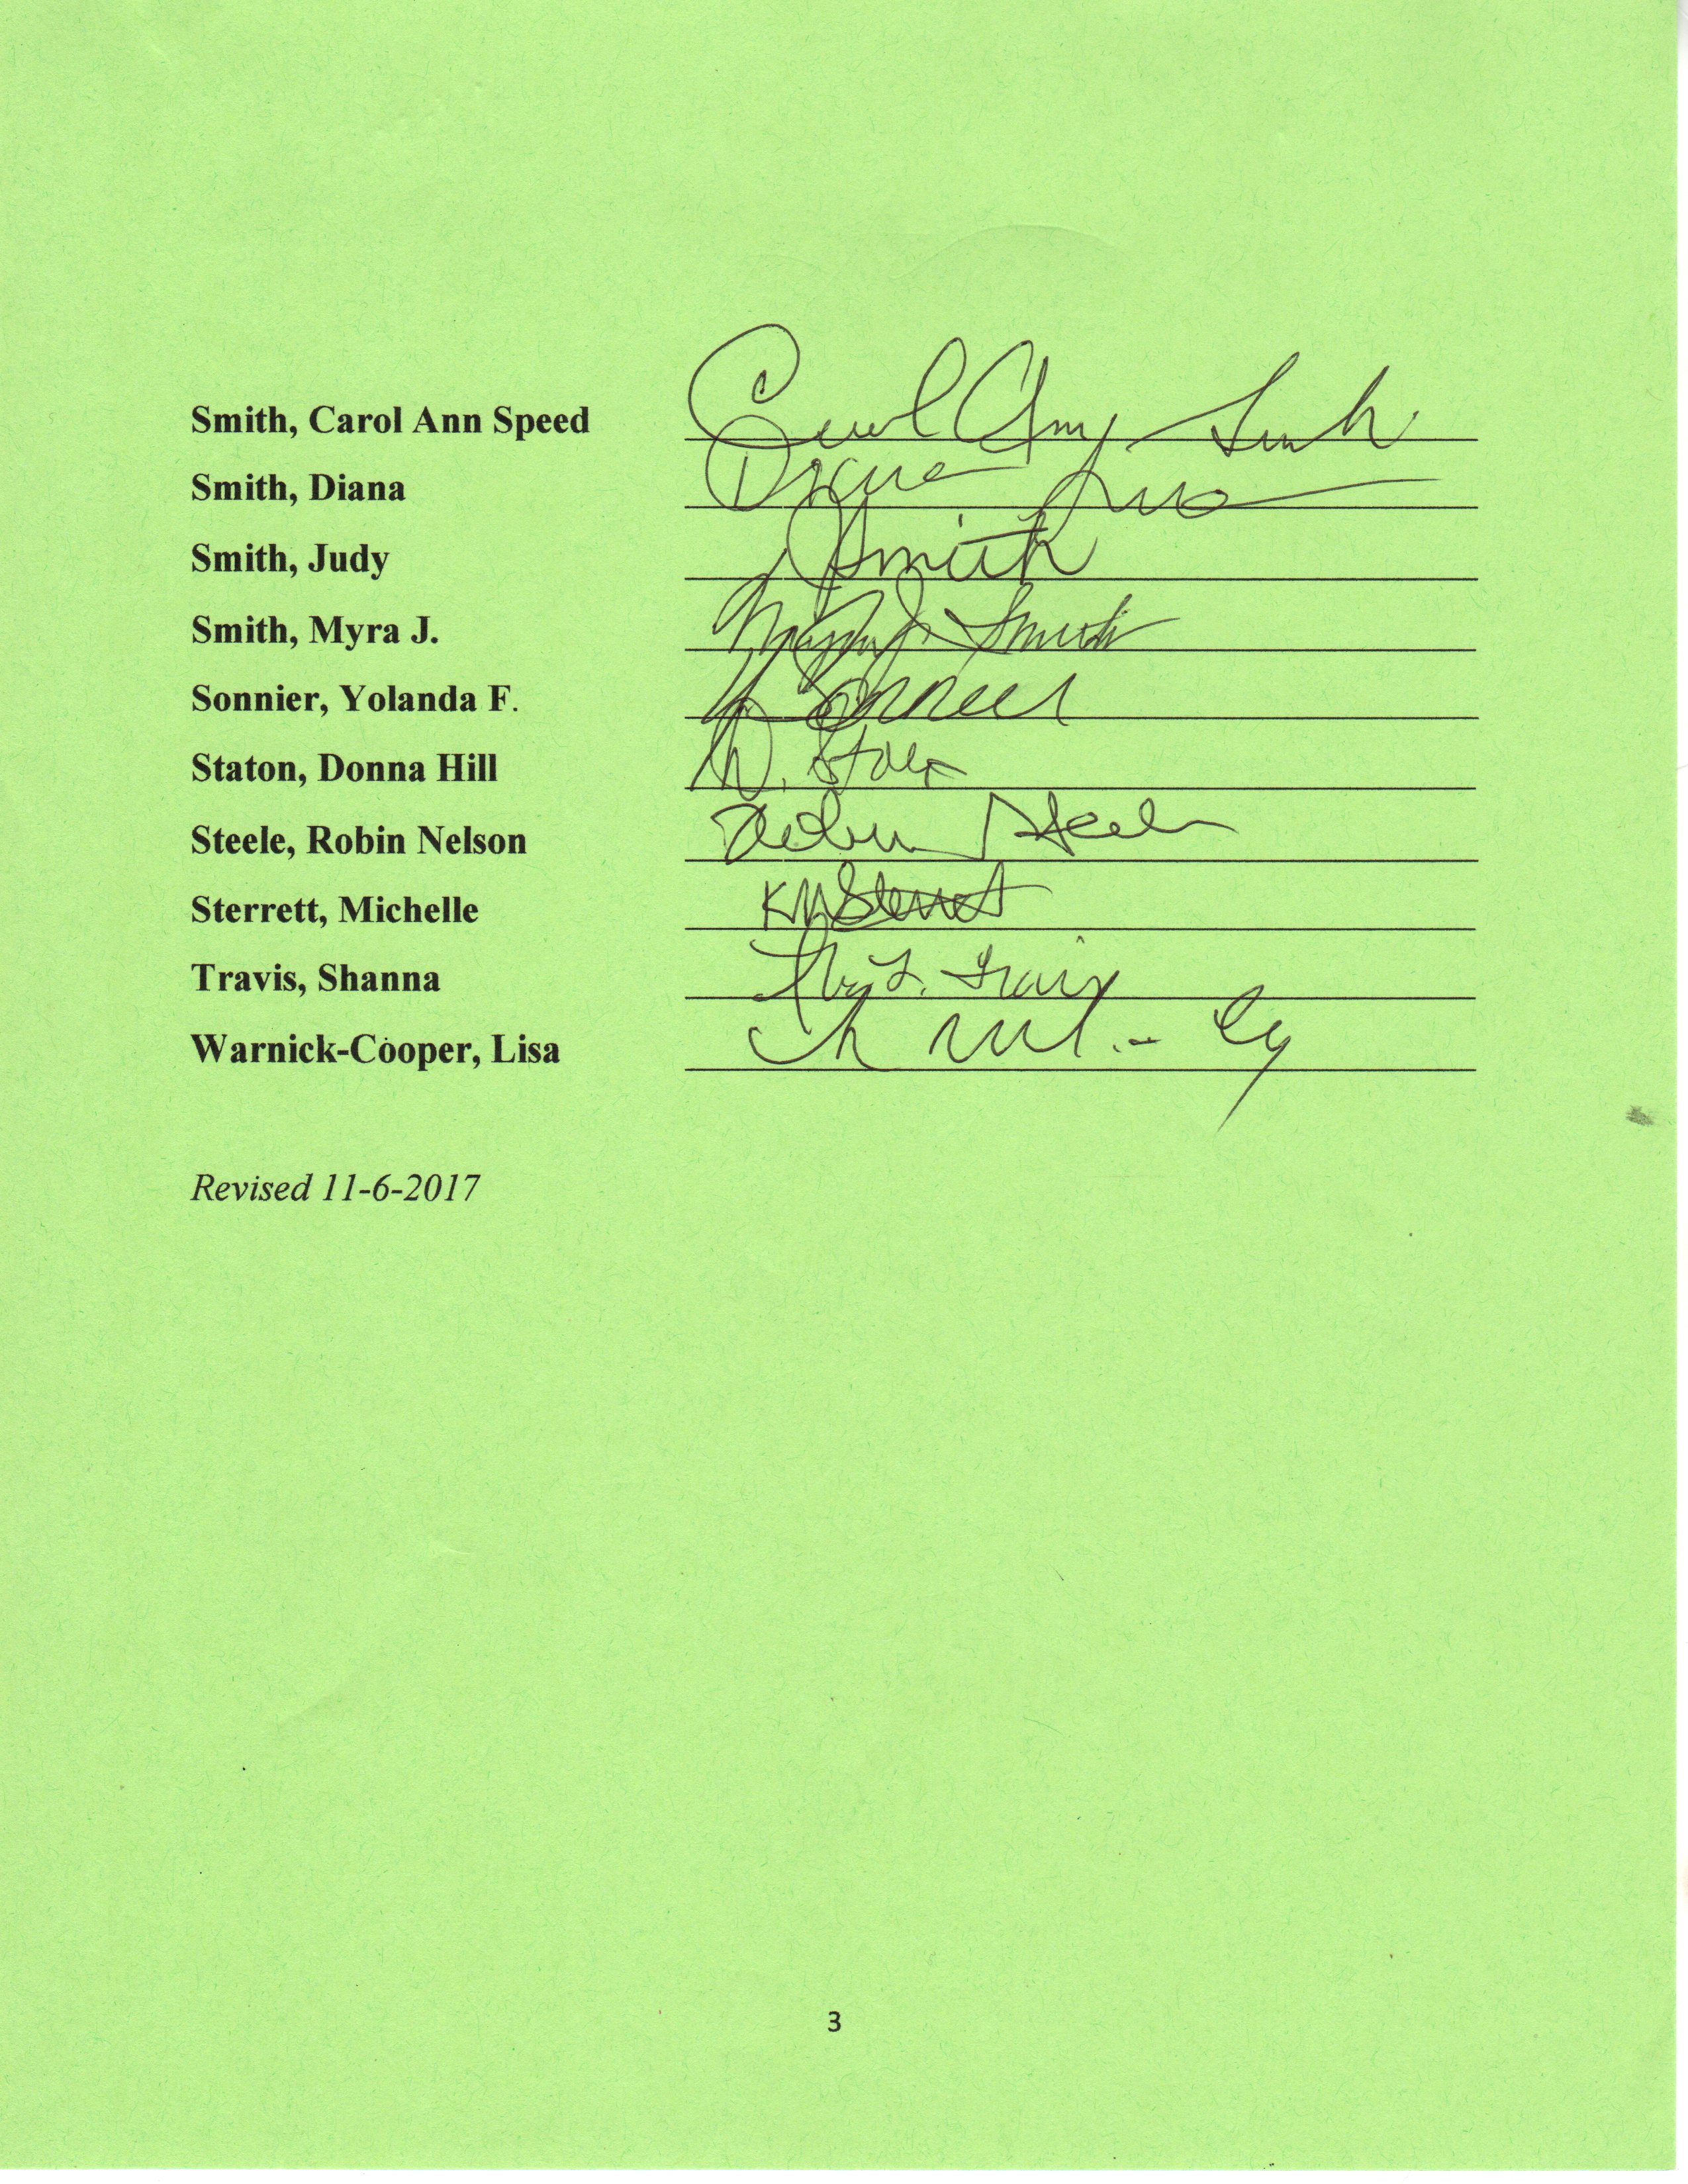 Smith, Carol Ann Speed Carol Ann Smith
Smith, Diana Diana
Smith, Judy J Smith
Smith, Myra J. Myra J. Smith
Sonnier, Yolanda F. Sonnier
Staton, Donna Hill D.
Steele, Robin Nelson Robin Steele
Sterrett, Michelle KMSterrett
Travis, Shanna Travis
Warnick-Cooper, Lisa
Revised 11-6-2017
3